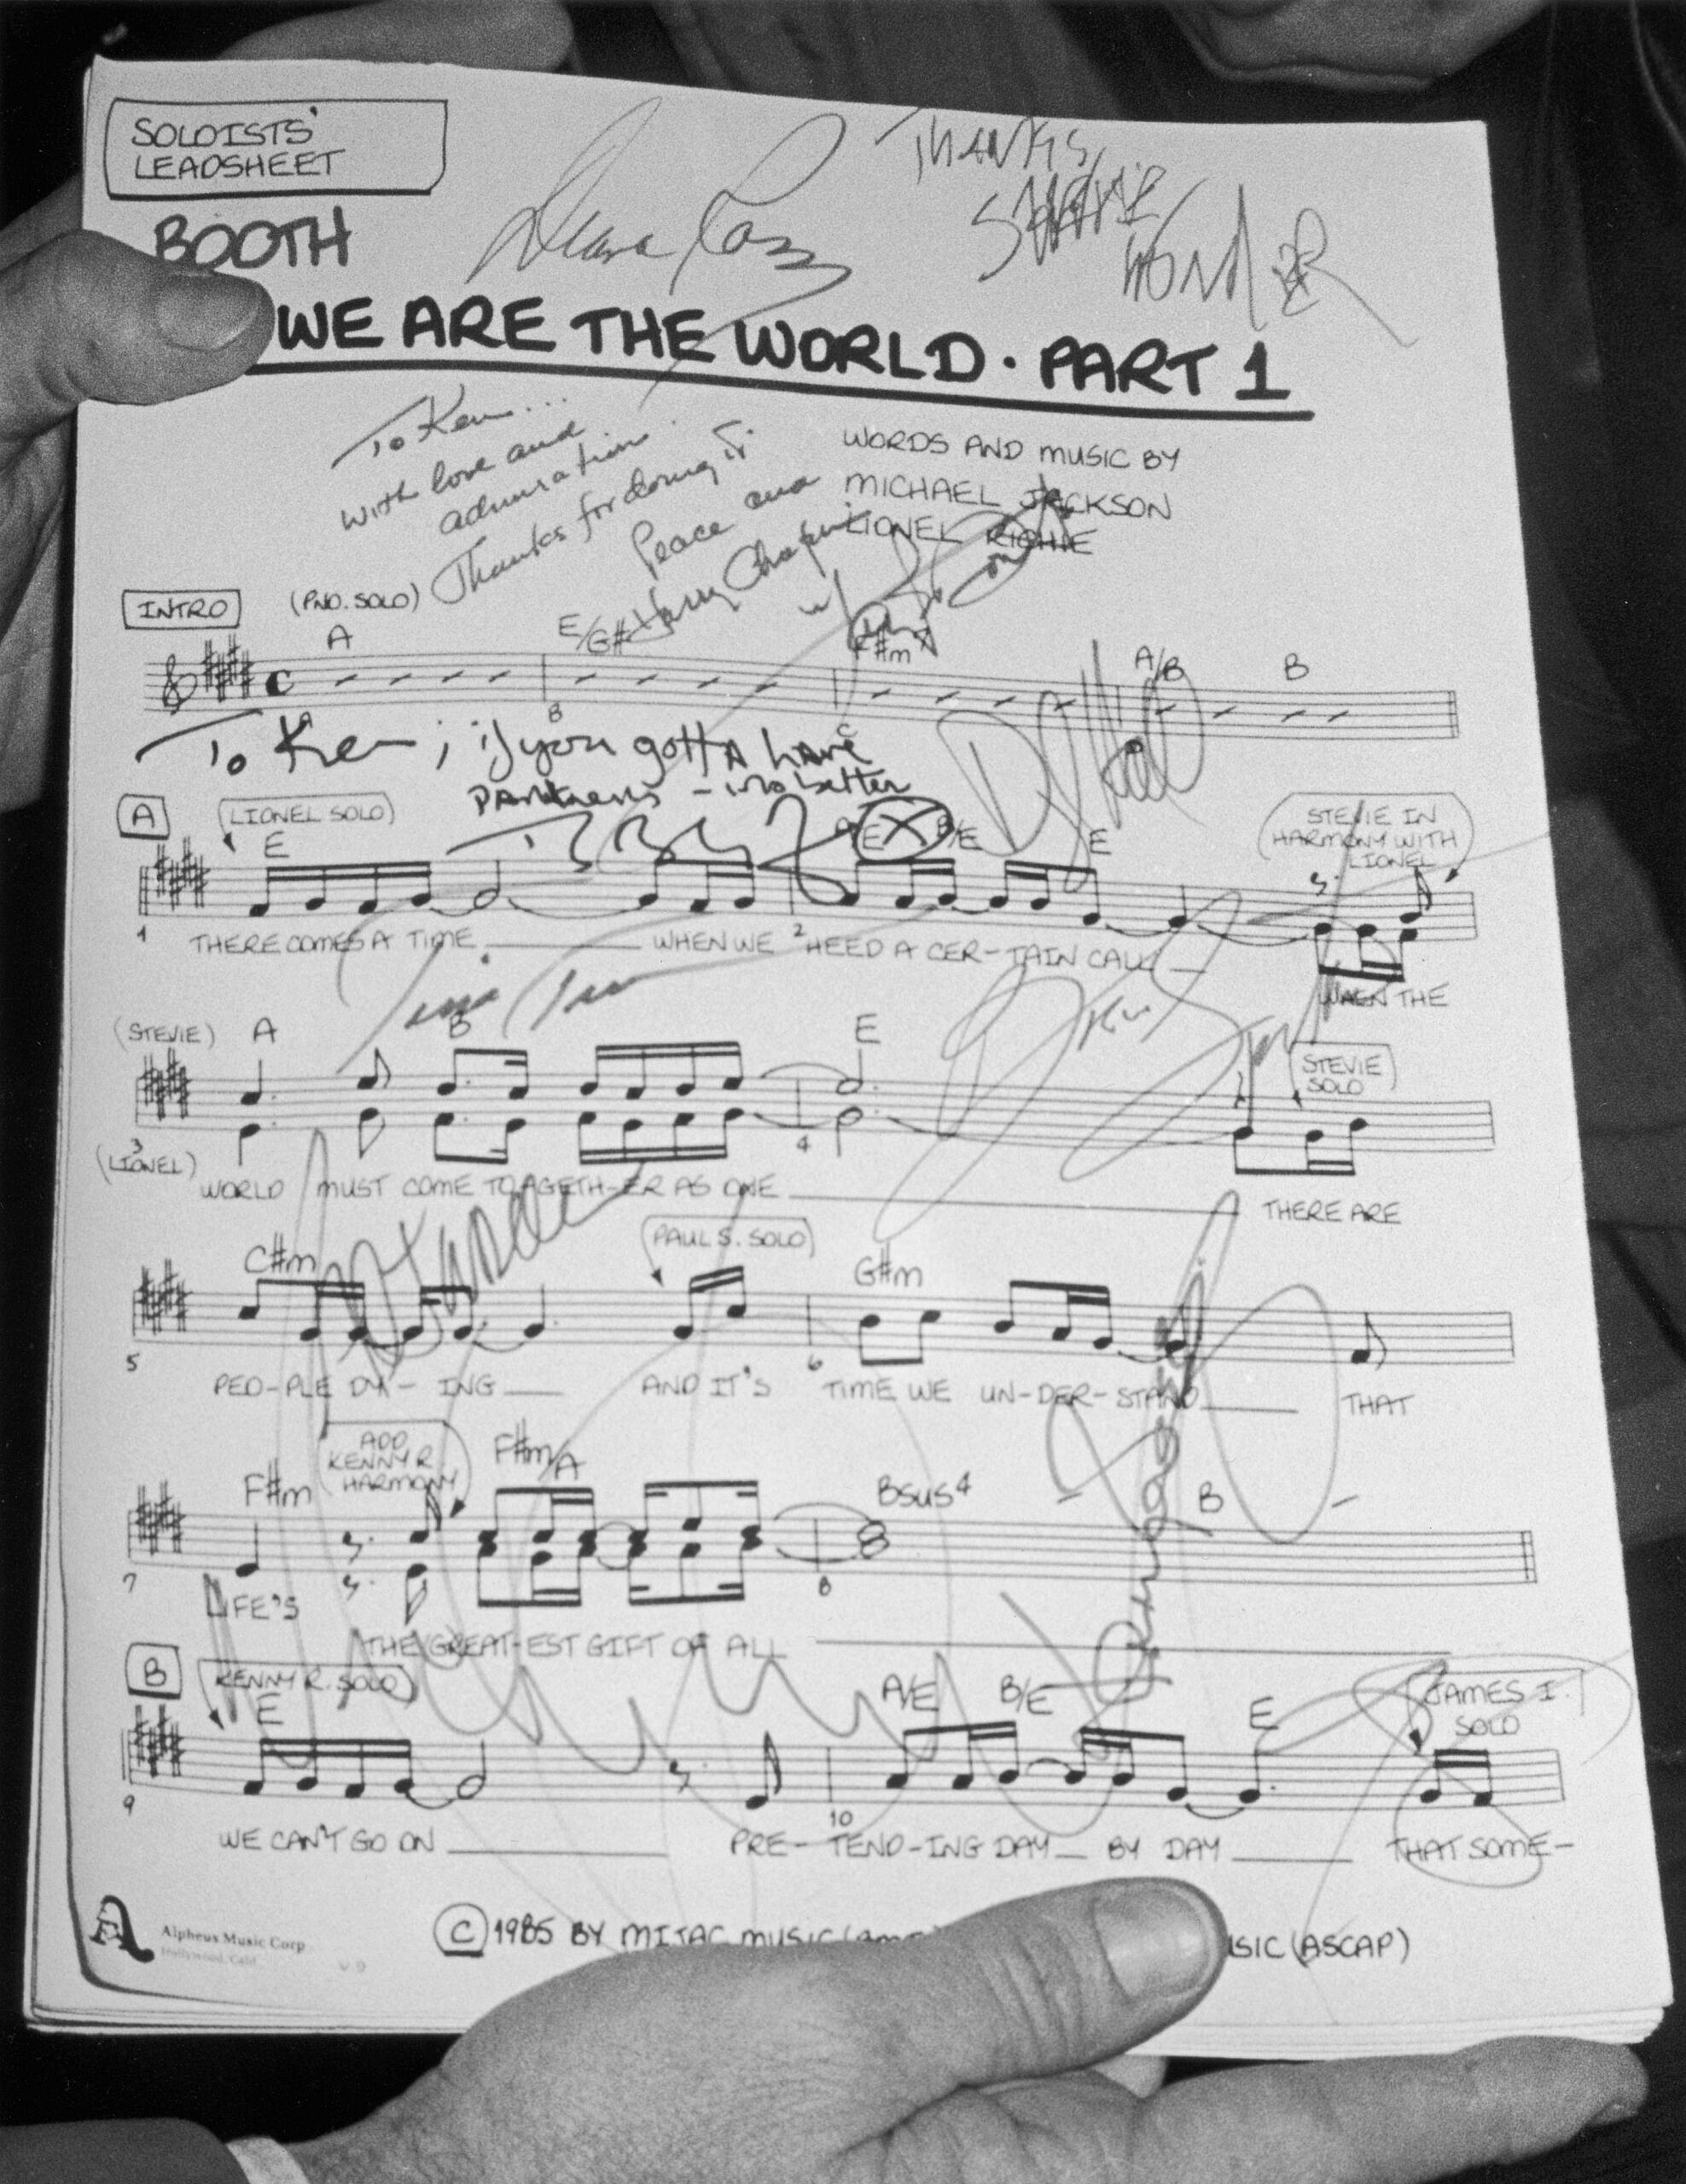 SOLOISTS'
LEADSHEET
BOOTH
Diana Ross
THANKS
STEVIE
WONDER
WE ARE THE WORLD · PART 1
To Ken...
with love and
admiration.
Thanks for doing it.
Peace and
Harry Chapin
WORDS AND MUSIC BY
MICHAEL JACKSON
LIONEL RICHIE
INTRO (PNO. SOLO)
A E/G# F#m7 A/B B
B C
To Ken; if you gotta have
partners - no better
A LIONEL SOLO STEVIE IN
HARMONY WITH
LIONEL
E A/E B/E E
1 THERE COMES A TIME WHEN WE 2 HEED A CER-TAIN CALL WHEN THE
Tina Tur
(STEVIE) A B E STEVIE
SOLO
3 4
(LIONEL)
WORLD MUST COME TOAGETH-ER AS ONE THERE ARE
C#m PAUL S. SOLO G#m
5 6
PEO-PLE DY-ING AND IT'S TIME WE UN-DER-STAND THAT
F#m ADD
KENNY R.
HARMONY F#m/A Bsus4 B
7 8
LIFE'S
THE GREAT-EST GIFT OF ALL
B KENNY R. SOLO JAMES I.
SOLO
E A/E B/E E
9 10
WE CAN'T GO ON PRE-TEND-ING DAY BY DAY THAT SOME-
A Alpheus Music Corp
Hollywood, Calif. V-9
© 1985 BY MIJAC MUSIC (BMI) USIC (ASCAP)